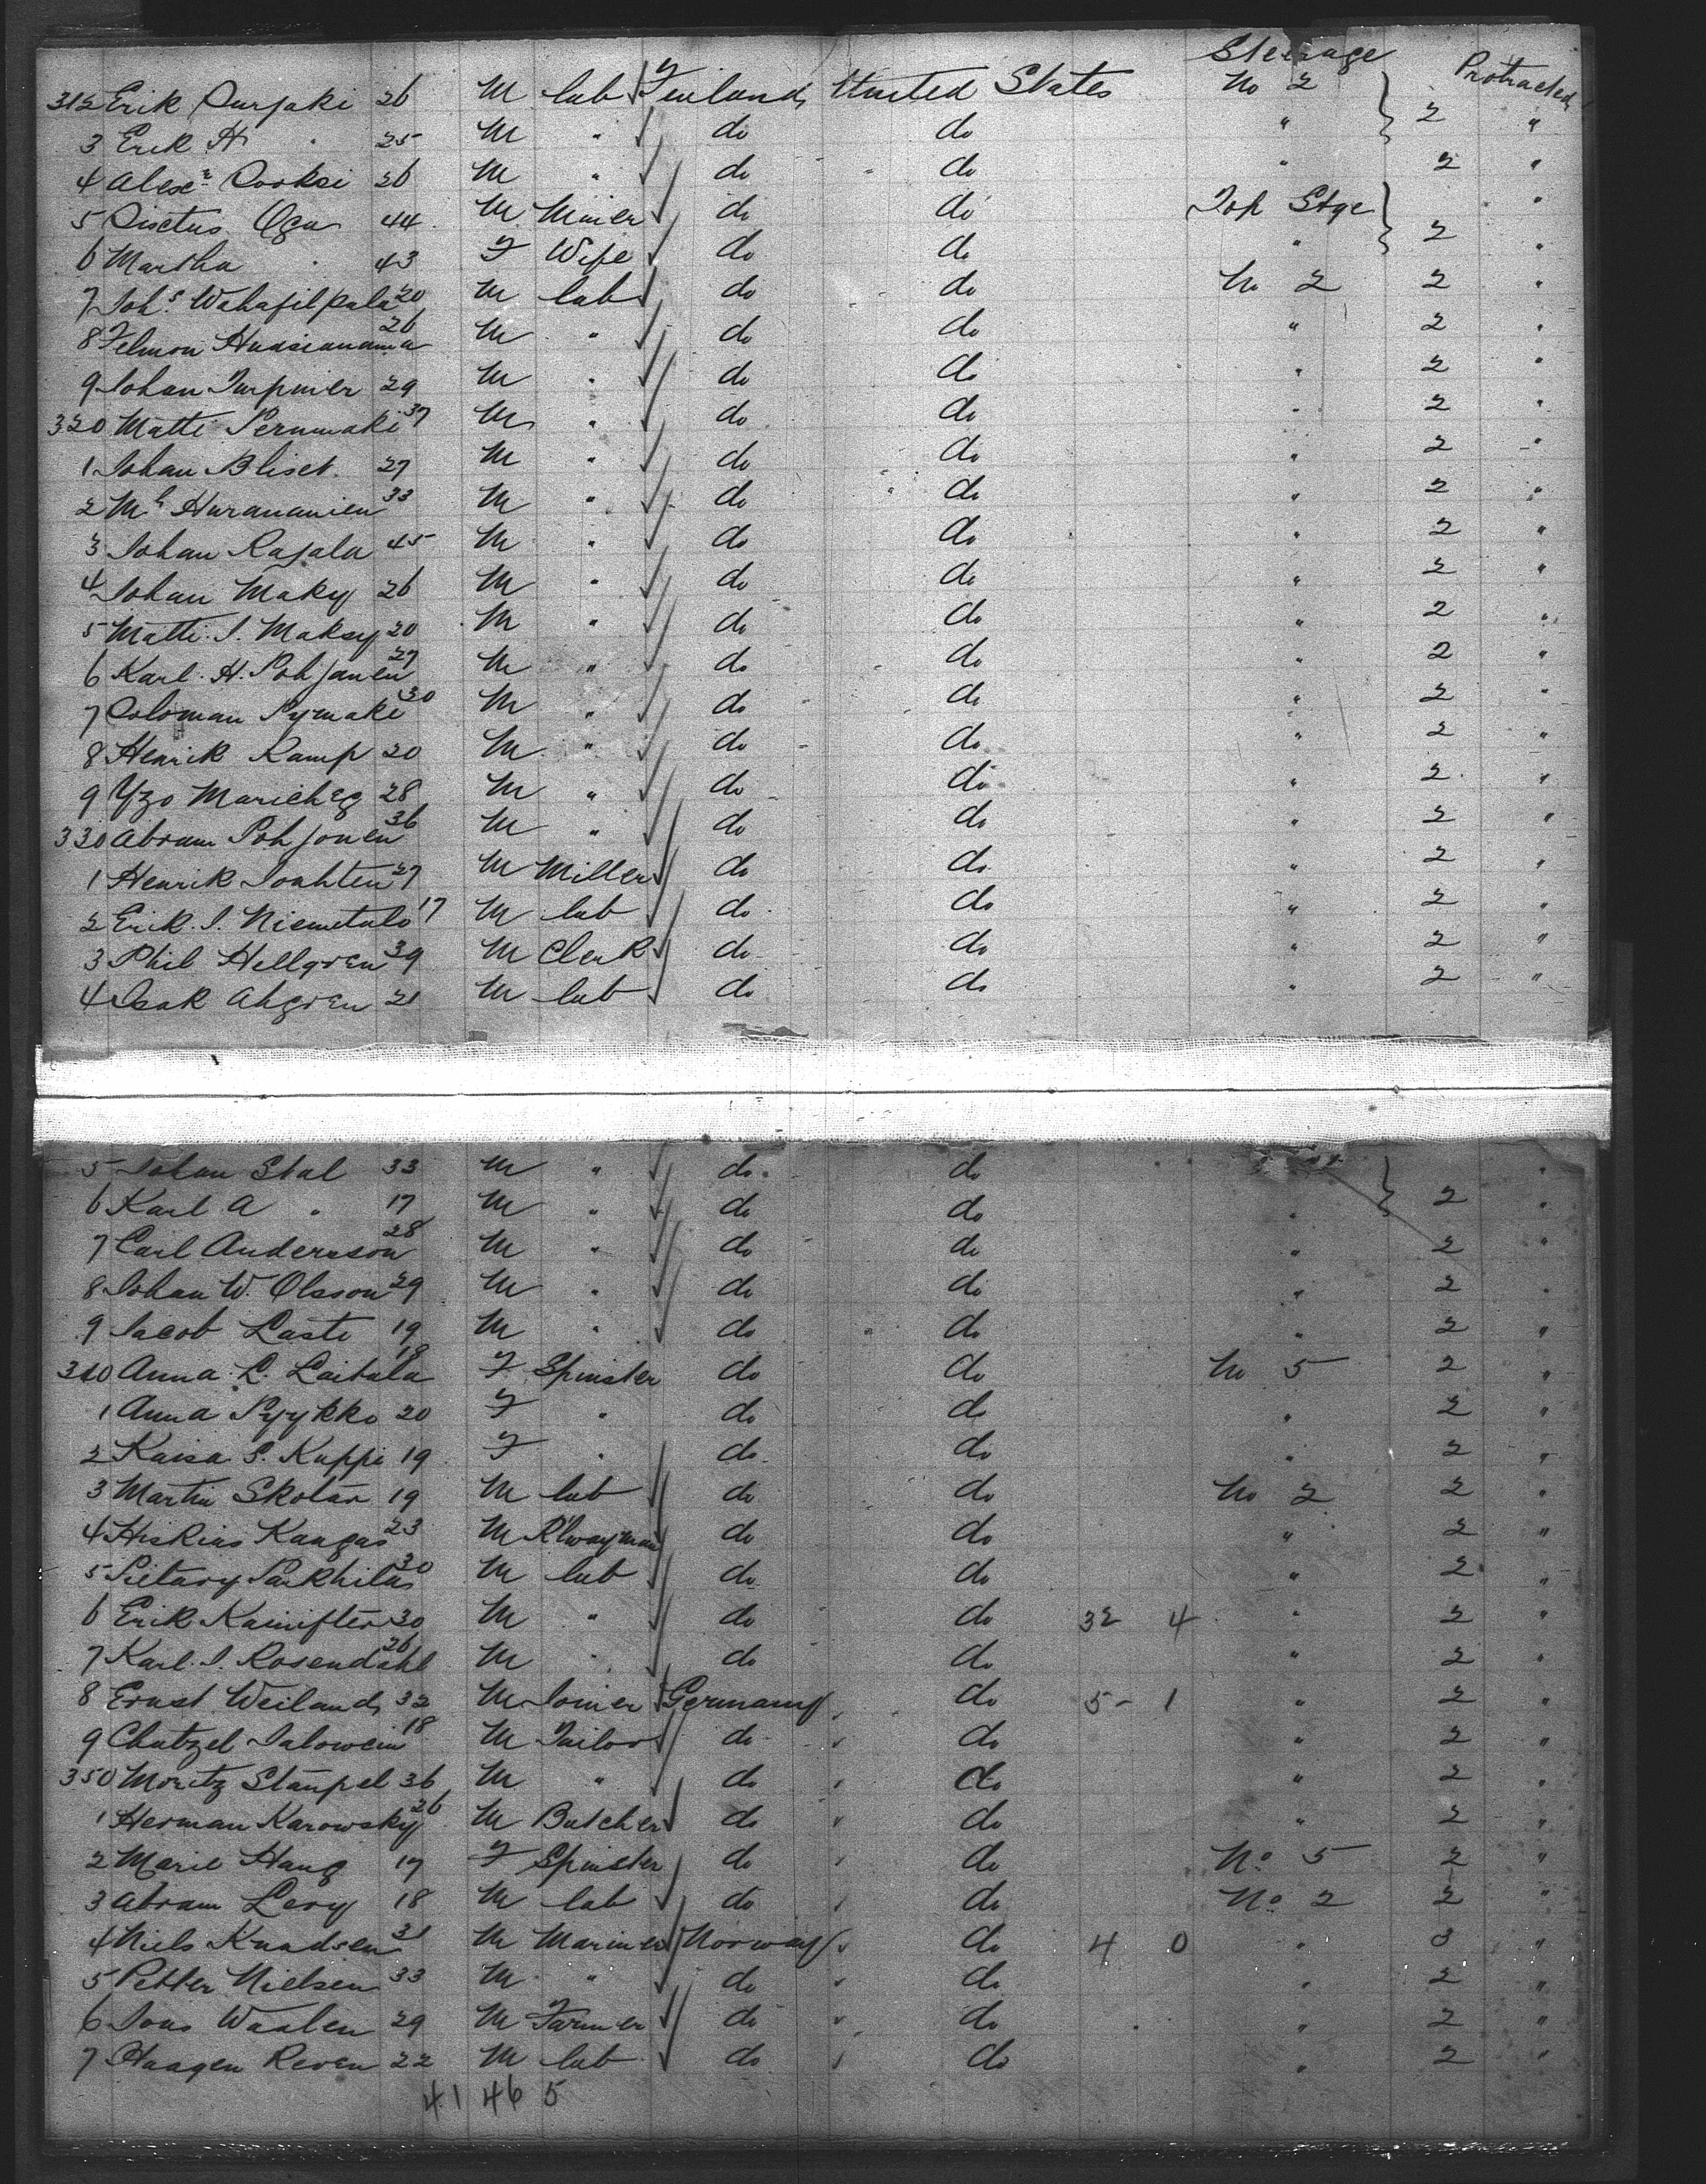 Steerage
312 Erik Purjaki 26 M lab Finland United States No 2 Protracted
3 Erik H " 25 M " do do " 2 "
4 Alexr 26 M " do do " 2 "
5 44 M Miner do do Top Stge "
6 Martha " 43 F Wife do do " 2 "
7 Johs. 20 M lab do do No 2 2 "
8 26 M " do do " 2 "
9 Johan 29 M " do do " 2 "
320 Matti Perumaki 37 M " do do " 2 "
1 Johan Bliset 27 M " do do " 2 "
2 Mh Hurananien 33 M " do do " 2 "
3 Johan Rajala 45 M " do do " 2 "
4 Johan Maky 26 M " do do " 2 "
5 Matti J. Maksy 20 M " do do " 2 "
6 Karl H. Pohjanen 27 M " do do " 2 "
7 Soloman Pymaki 30 M " do do " 2 "
8 Henrik Kamp 20 M " do do " 2 "
9 Yzo 28 M " do do " 2 "
330 Abram Pohjonen 36 M " do do " 2 "
1 Henrik 27 M Miller do do " 2 "
2 Erik J. 17 M lab do do " 2 "
3 Phil Hellgren 39 M Clerk do do " 2 "
4 Isak Ahgren 21 M lab do do " 2 "
5 Johan Stal 33 M " do do "
6 Karl A " 17 M " do do " 2 "
7 Carl Andersson 28 M " do do " 2 "
8 Johan W. Olsson 29 M " do do " 2 "
9 Jacob Lasti 19 M " do do " 2 "
340 Anna L. Laitala 18 F Spinster do do No 5 2 "
1 Anna Pyykko 20 F " do do " 2 "
2 Kaisa S. Kuppi 19 F " do do " 2 "
3 Martin Skolar 19 M lab do do No 2 2 "
4 Hiskias Kangas 23 M R'lwayman do do " 2 "
5 30 M lab do do " 2 "
6 Erik 30 M " do do 32 4 " 2 "
7 Karl J. Rosendahl 26 M " do do " 2 "
8 Ernst Weiland 32 M Joiner Germany do 5 - 1 " 2 "
9 Chatzel 18 M Tailor do do " 2 "
350 Moritz Stampel 36 M " do do " 2 "
1 Herman Karowsky 26 M Butcher do do " 2 "
2 Marie Haug 17 F Spinster do do No 5 2 "
3 Abram Levy 18 M lab do do No 2 2 "
4 Niels Knudsen 31 M Mariner Norway do 4 0 " 3 "
5 Petter Nielsen 33 M " do do " 2 "
6 Jons Waalen 29 M Farmer do do " 2 "
7 Haagen Reven 22 M lab do do " 2 "
41 46 5